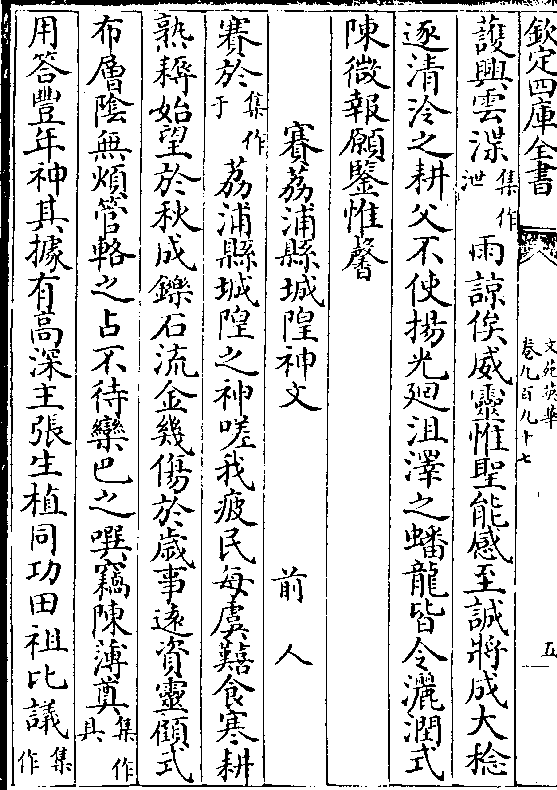 欽定四庫全書
文苑英華
卷九百九十七
五
䕶興雲渫集作泄雨諒俟威靈惟聖能感至誠將成大稔
逐清泠之耕父不使揚光廻沮澤之蟠龍皆令灑潤式
陳微報願鑒惟馨
賽荔浦縣城隍神文 前人
賽於集作于荔浦縣城隍之神嗟我疲民每虞艱食寒耕
熟耨始望於秋成鑠石流金幾傷於歲事逺資靈顧式
布層陰無煩管輅之占不待欒巴之噀竊陳薄奠集作具
用答豐年神其據有高深主張生植同功田祖比議集作